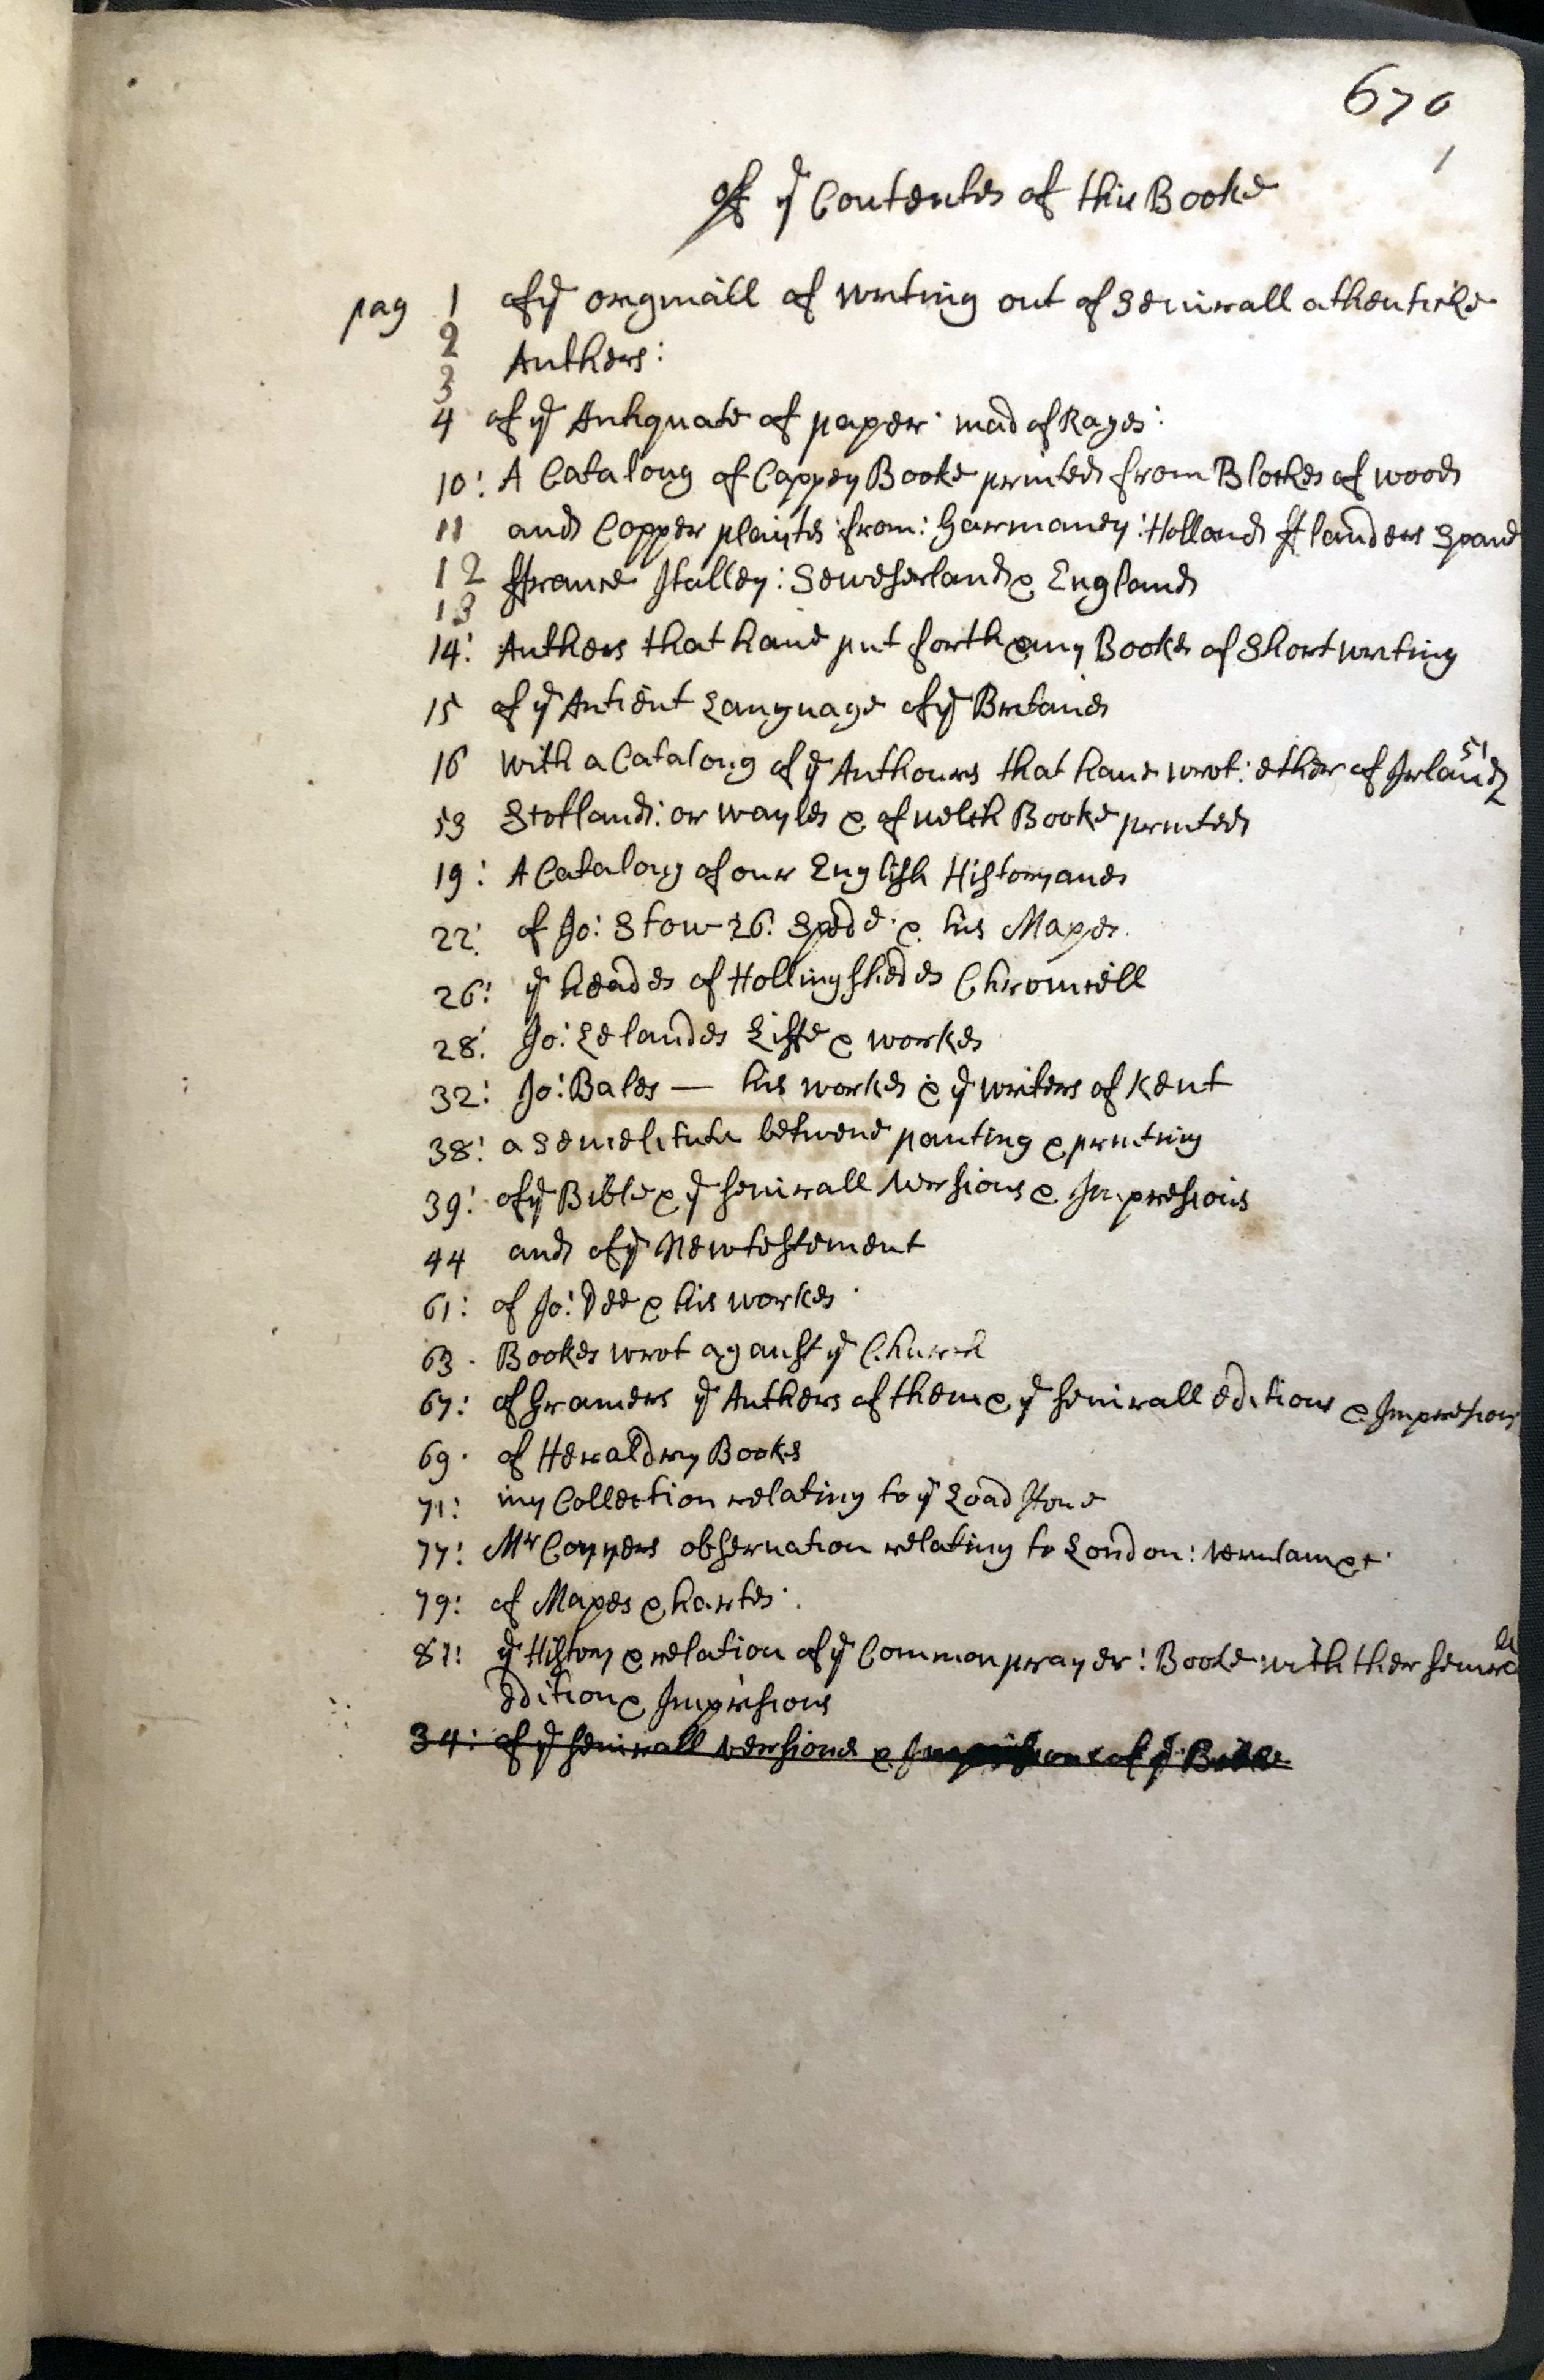 670
1
of yͤ Contentes of this Booke
pag 1 of yͤ orginall of writing out of Seuirall athenticke
2
Authers:
3
4 of yͤ Antiquate of paper: mad of Rages:
10: A Catalong of Coppey Booke printed from Blockes of wood
11 and Copper plaites from: Garmaney: Holland fflanders Spane
12 ffrance Italley: Seweserland & England
13
14: Authers that haue put forth any Bookes of Short writing
15 of yͤ Antient Language of yͤ Britanes
16 with a Catalong of yͤ Authours that haue wrot: ether of Irland 51
53 Scotland: or wayles & of welch Booke printed
19: A Catalong of our English Historyanes
22: of Jo: Stow 26: Spede: & his Mapes.
26: yͤ heades of Hollingshedes Chronicell
28: Jo: Lelandes Liffe & workes
32: Jo: Bales — his workes & yͤ writers of Kent
38: a Semelitute betwene panting & printing
39: of yͤ Bible & yͤ seuirall versions & Impresions
44 and of yͤ Newtestement
61: of Jo: Dee & his workes
63. Bookes wrot aganst yͤ Church
67: of Gramers yͤ Authers of them & yͤ seuirall editions & Impresions
69. of Heraldry Bookes
71: my Collection relating to yͤ Load stone
77: Mr Conyers obseruation relating to London: verulam &c
79: of Mapes & hartes:
87: yͤ History & relation of yͤ Common prayer: Booke with ther seuirall
edition & Impresions
34: of yͤ seuirall versiones & Impresions of yͤ Bible